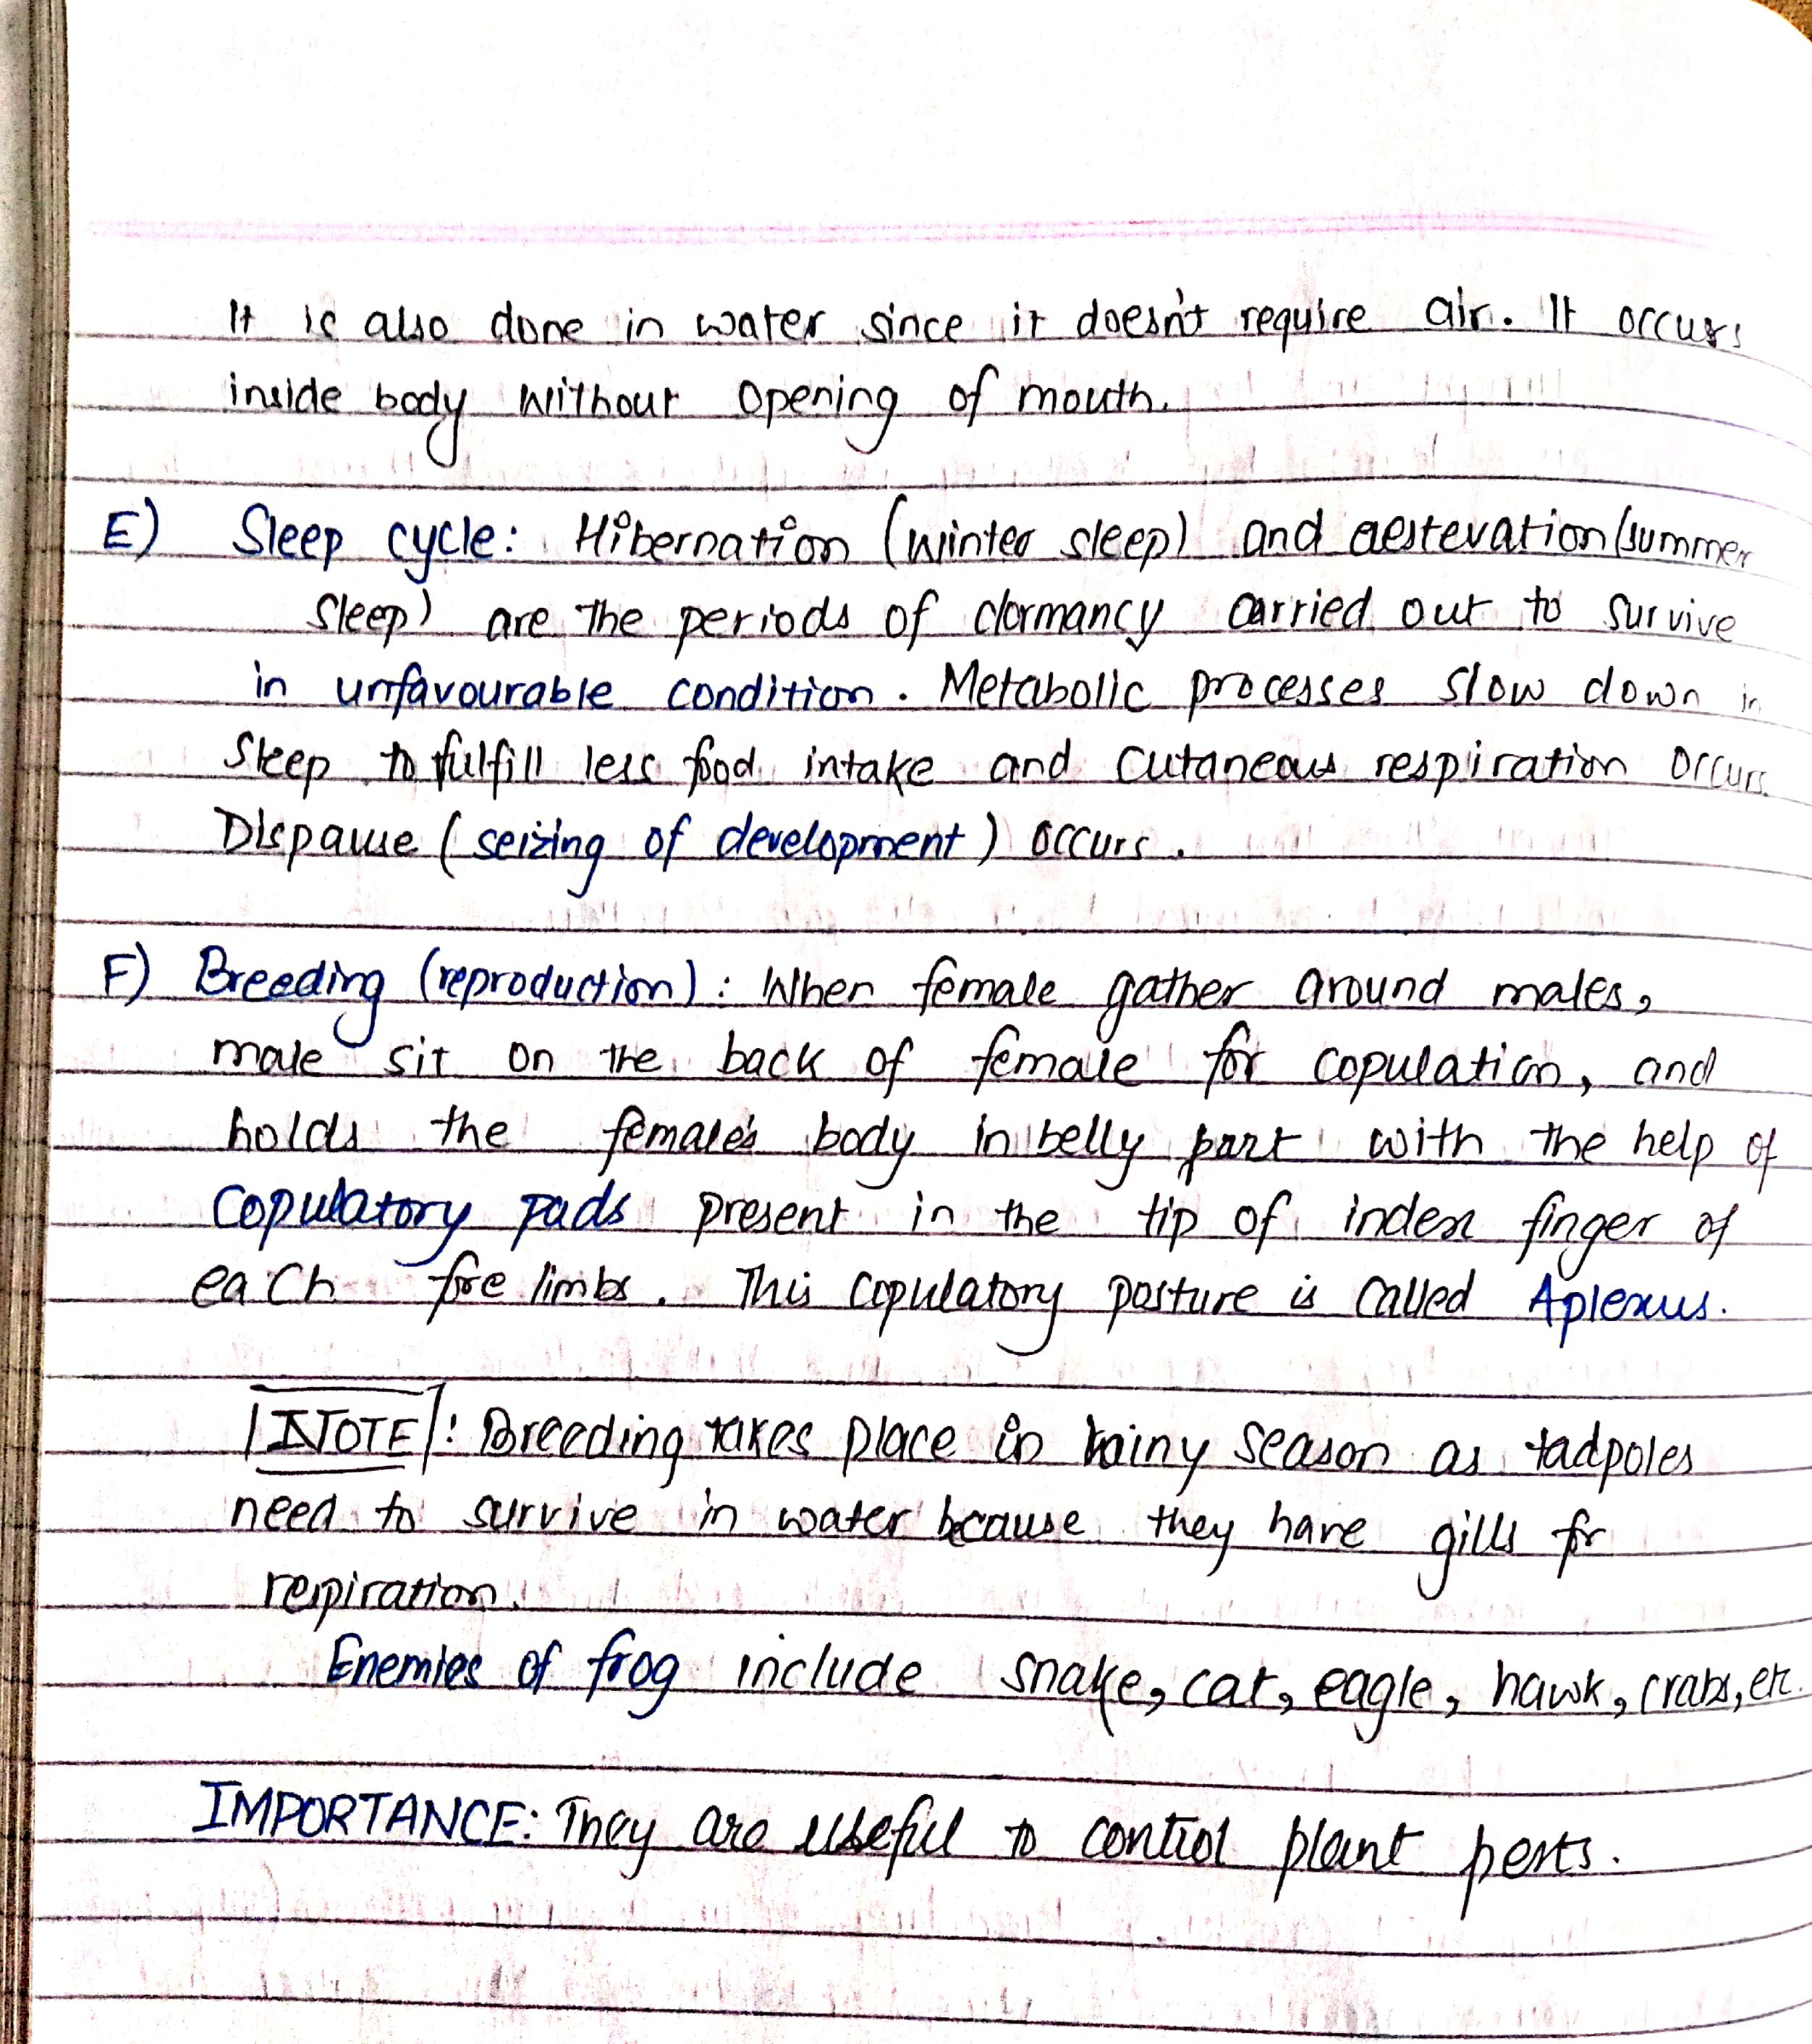 It is also done in water since it doesn't require air. It occurs
inside body without opening of mouth.
E) Sleep cycle: Hibernation (winter sleep) and aestevation (summer
sleep) are the periods of dormancy carried out to survive
in unfavourable condition. Metabolic processes slow down in
sleep to fulfill less food intake and cutaneous respiration occurs.
Dispause (seizing of development) occurs.
F) Breeding (reproduction): When female gather around males,
male sit on the back of female for copulation, and
holds the female's body in belly part with the help of
copulatory pads present in the tip of index finger of
each fore limbs. This copulatory posture is called Aplexus.
NOTE: Breeding takes place in rainy season as tadpoles
need to survive in water because they have gills for
respiration.
Enemies of frog include snake, cat, eagle, hawk, crabs, etc.
IMPORTANCE: They are useful to control plant pests.